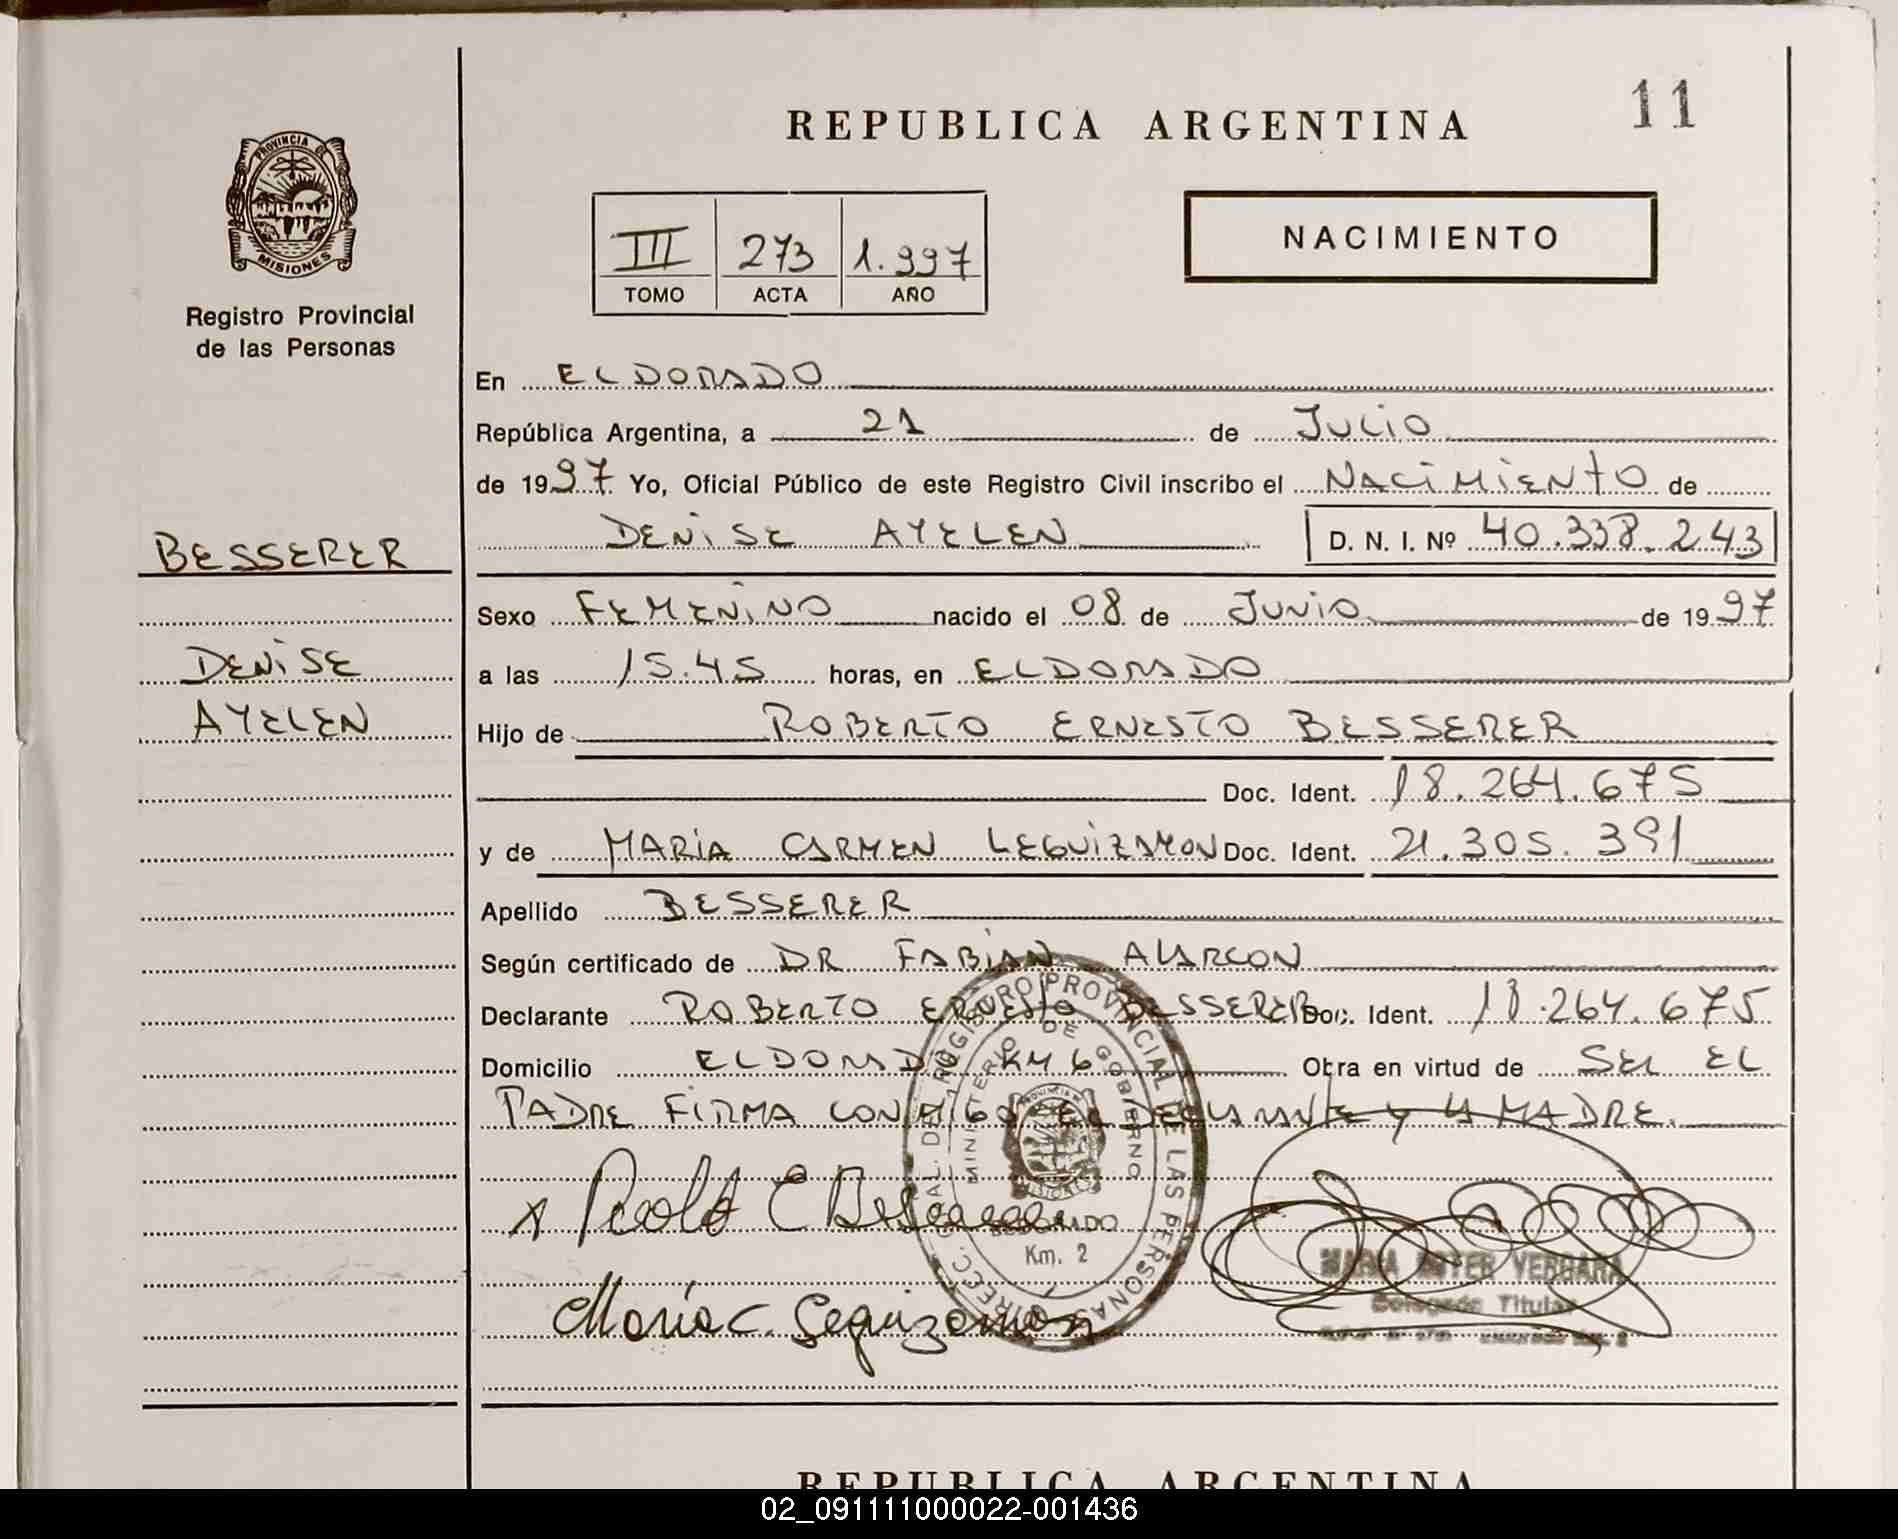 11
REPUBLICA ARGENTINA
PROVINCIA DE
MISIONES
Registro Provincial
de las Personas
III 273 1.997
TOMO ACTA AÑO
NACIMIENTO
En ELDORADO
República Argentina, a 21 de JULIO
de 1997 Yo, Oficial Público de este Registro Civil inscribo el NACIMIENTO de
DENISE AYELEN D. N. I. Nº 40.338.243
BESSERER
DENISE
AYELEN
Sexo FEMENINO nacido el 08 de JUNIO de 1997
a las 15.45 horas, en ELDORADO
Hijo de ROBERTO ERNESTO BESSERER
Doc. Ident. 18.264.675
y de MARIA CARMEN LEGUIZAMON Doc. Ident. 21.305.391
Apellido BESSERER
Según certificado de DR FABIAN ALARCON
Declarante ROBERTO ERNESTO BESSERER Doc. Ident. 18.264.675
Domicilio ELDORADO KM 6 Obra en virtud de SER EL
PADRE FIRMA CONMIGO EL DECLARANTE Y LA MADRE.
DIREC. GRAL. DEL REGISTRO PROVINCIAL DE LAS PERSONAS
MINISTERIO DE GOBIERNO
PROVINCIA DE
MISIONES
ELDORADO
Km. 2
María C. Leguizamon
MARIA ESTER VERGARA
Delegada Titular
REPUBLICA ARGENTINA
02_091111000022-001436